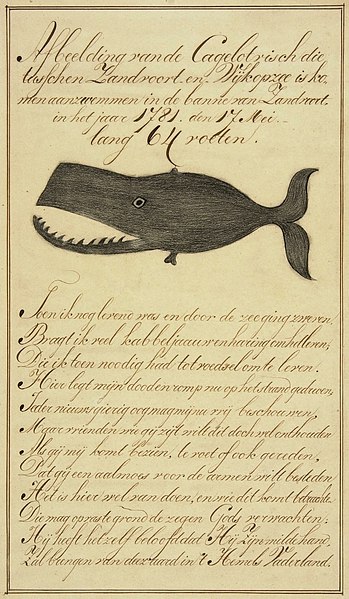 Afbeelding van de Cagelot visch die
tusschen Zandvoort en Wijk op zee is ko,
men aanzwemmen in de banne van Zandvoort
in het jaar 1781. den 17 Mei. —
lang 64 voeten.
Toen ik nog levend was en door de zee ging zweven,
Bragt ik veel kabbeljaauw en haring om het leven,
Die ik toen noodig had tot voedsel om te leven.
Hier ligt mijn dooden romp nu op het strand gedreven,
Ieder nieuwsgierig oog mag mij nu vrij beschouwen,
Maar vrienden wie gij zijt wilt dit doch wel onthouden
Als gij mij komt bezien, te voet of ook gereden,
Dat gij een aalmoes voor de armen wilt besteden,
Het is hier wel van doen, en wie dit komt betrachte
Die mag op vaste grond de zegen Gods verwachten,
Hij heeft het zelf beloofd dat Hij Zijn milde hand,
Zal brengen van daar in 't Hemels Vaderland.